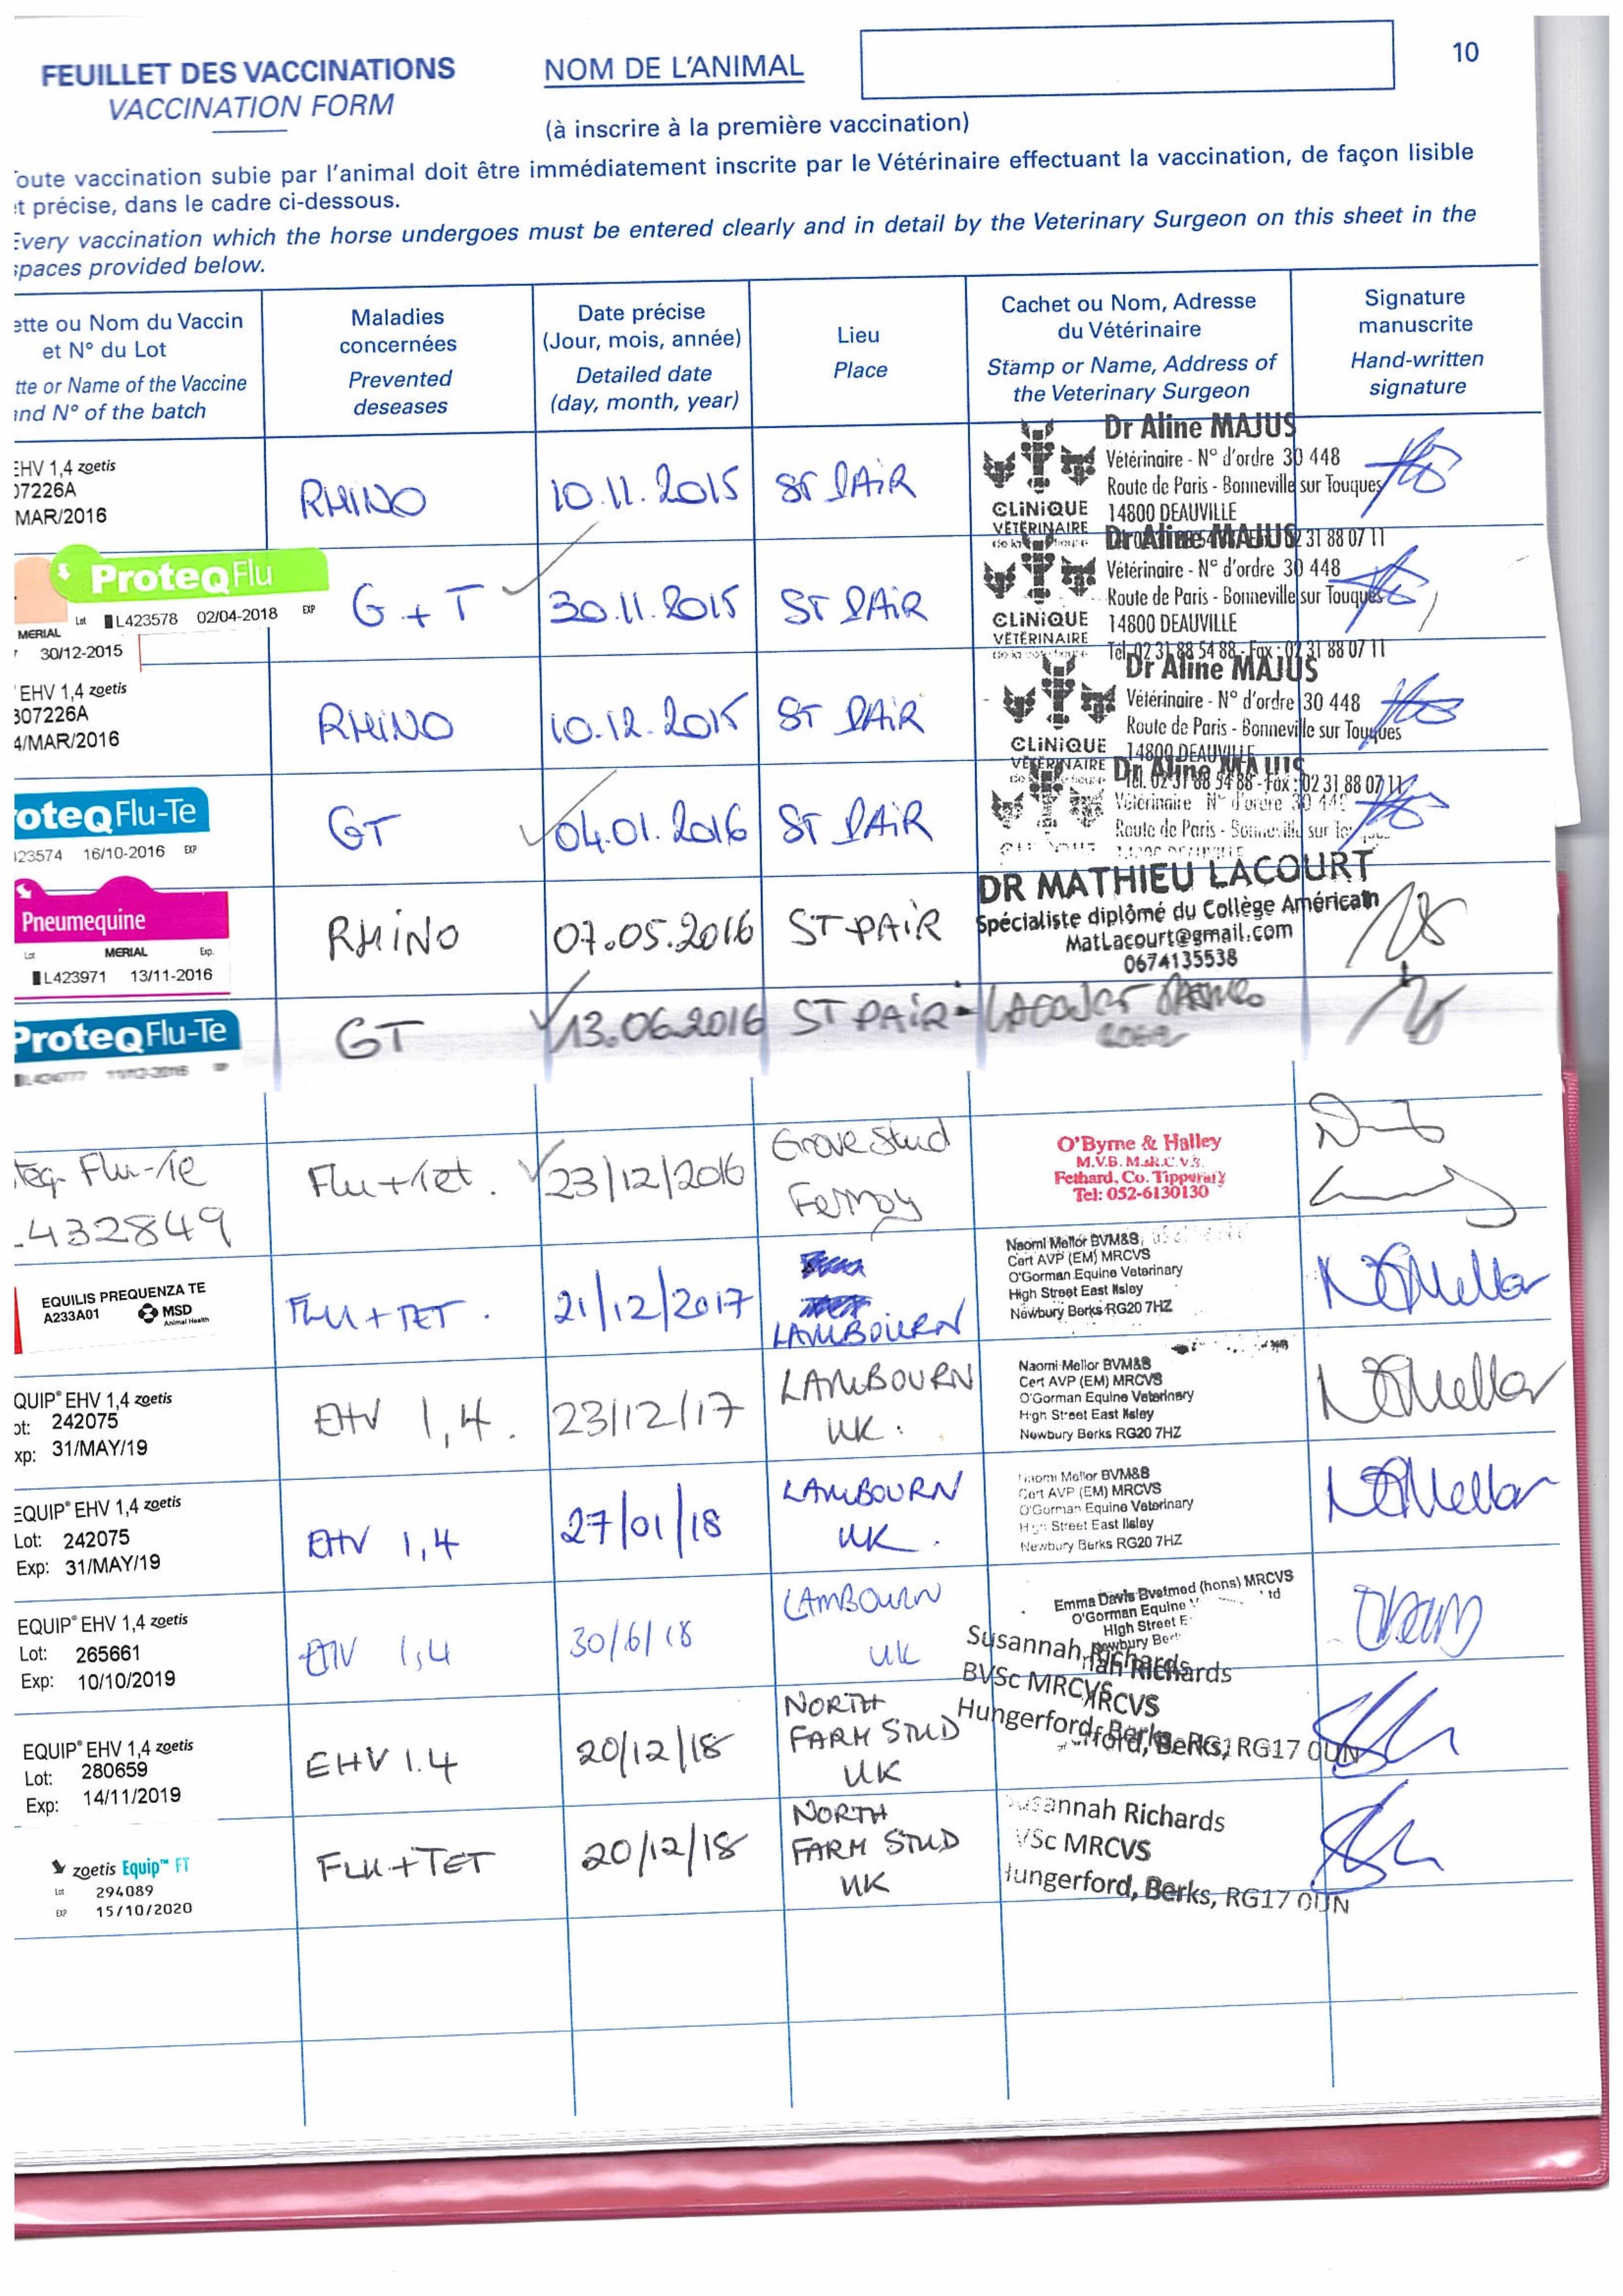 10
FEUILLET DES VACCINATIONS
VACCINATION FORM
NOM DE L'ANIMAL
(à inscrire à la première vaccination)
oute vaccination subie par l'animal doit être immédiatement inscrite par le Vétérinaire effectuant la vaccination, de façon lisible
t précise, dans le cadre ci-dessous.
Every vaccination which the horse undergoes must be entered clearly and in detail by the Veterinary Surgeon on this sheet in the
spaces provided below.
ette ou Nom du Vaccin
et N° du Lot
tte or Name of the Vaccine
and N° of the batch
Maladies
concernées
Prevented
deseases
Date précise
(Jour, mois, année)
Detailed date
(day, month, year)
Lieu
Place
Cachet ou Nom, Adresse
du Vétérinaire
Stamp or Name, Address of
the Veterinary Surgeon
Signature
manuscrite
Hand-written
signature
EHV 1,4 zoetis
07226A
MAR/2016
RHINO
10.11.2015
ST PAIR
Dr Aline MAJUS
Vétérinaire - N° d'ordre 30 448
Route de Paris - Bonneville sur Touques
14800 DEAUVILLE
CLINIQUE
VETERINAIRE
31 88 07 11
ProteqFlu
Lot L423578 02/04-2018 EXP
MERIAL
30/12-2015
G + T
30.11.2015
ST PAIR
Dr Aline MAJUS
Vétérinaire - N° d'ordre 30 448
Route de Paris - Bonneville sur Touques
14800 DEAUVILLE
CLINIQUE
VETERINAIRE
Tél. 02 31 88 54 88 - Fax : 02 31 88 07 11
EHV 1,4 zoetis
307226A
4/MAR/2016
RHINO
10.12.2015
ST PAIR
Dr Aline MAJUS
Vétérinaire - N° d'ordre 30 448
Route de Paris - Bonneville sur Touques
14800 DEAUVILLE
CLINIQUE
VETERINAIRE
Tél. 02 31 88 54 88 - Fax : 02 31 88 07 11
oteqFlu-Te
423574 16/10-2016 EXP
GT
04.01.2016
ST PAIR
Dr Aline MAJUS
Vétérinaire N° d'ordre 30 448
Route de Paris - Bonneville sur
Pneumequine
Lot MERIAL Exp.
L423971 13/11-2016
RHINO
07.05.2016
ST PAIR
DR MATHIEU LACOURT
Spécialiste diplômé du Collège Américain
MatLacourt@gmail.com
0674135538
ProteqFlu-Te
GT
13.06.2016
ST PAIR
LACOURT
teq. Flu-Te
432849
Flu+Tet.
23/12/2016
Grove Stud
Fermoy
O'Byrne & Halley
M.V.B. M.R.C.V.S.
Fethard, Co. Tipperary
Tel: 052-6130130
EQUILIS PREQUENZA TE
A233A01
MSD
Animal Health
FLU + TET.
21/12/2017
LAMBOURN
Naomi Mellor BVM&S
Cert AVP (EM) MRCVS
O'Gorman Equine Veterinary
High Street East Ilsley
Newbury Berks RG20 7HZ
NEMellor
QUIP® EHV 1,4 zoetis
ot: 242075
xp: 31/MAY/19
EHV 1,4.
23/12/17
LAMBOURN
UK.
Naomi Mellor BVM&S
Cert AVP (EM) MRCVS
O'Gorman Equine Veterinary
High Street East Ilsley
Newbury Berks RG20 7HZ
NEMellor
EQUIP® EHV 1,4 zoetis
Lot: 242075
Exp: 31/MAY/19
EHV 1,4
27/01/18
LAMBOURN
UK.
Naomi Mellor BVM&S
Cert AVP (EM) MRCVS
O'Gorman Equine Veterinary
High Street East Ilsley
Newbury Berks RG20 7HZ
NEMellor
EQUIP® EHV 1,4 zoetis
Lot: 265661
Exp: 10/10/2019
EHV 1,4
30/6/18
LAMBOURN
UK
Emma Davis Bvetmed (hons) MRCVS
O'Gorman Equine
High Street
Newbury
EQUIP® EHV 1,4 zoetis
Lot: 280659
Exp: 14/11/2019
EHV 1.4
20/12/18
NORTH
FARM STUD
UK
Susannah Richards
BVSc MRCVS
Hungerford, Berks, RG17 0UN
zoetis Equip™ FT
Lot 294089
EXP 15/10/2020
FLU+TET
20/12/18
NORTH
FARM STUD
UK
Susannah Richards
VSc MRCVS
Hungerford, Berks, RG17 0UN